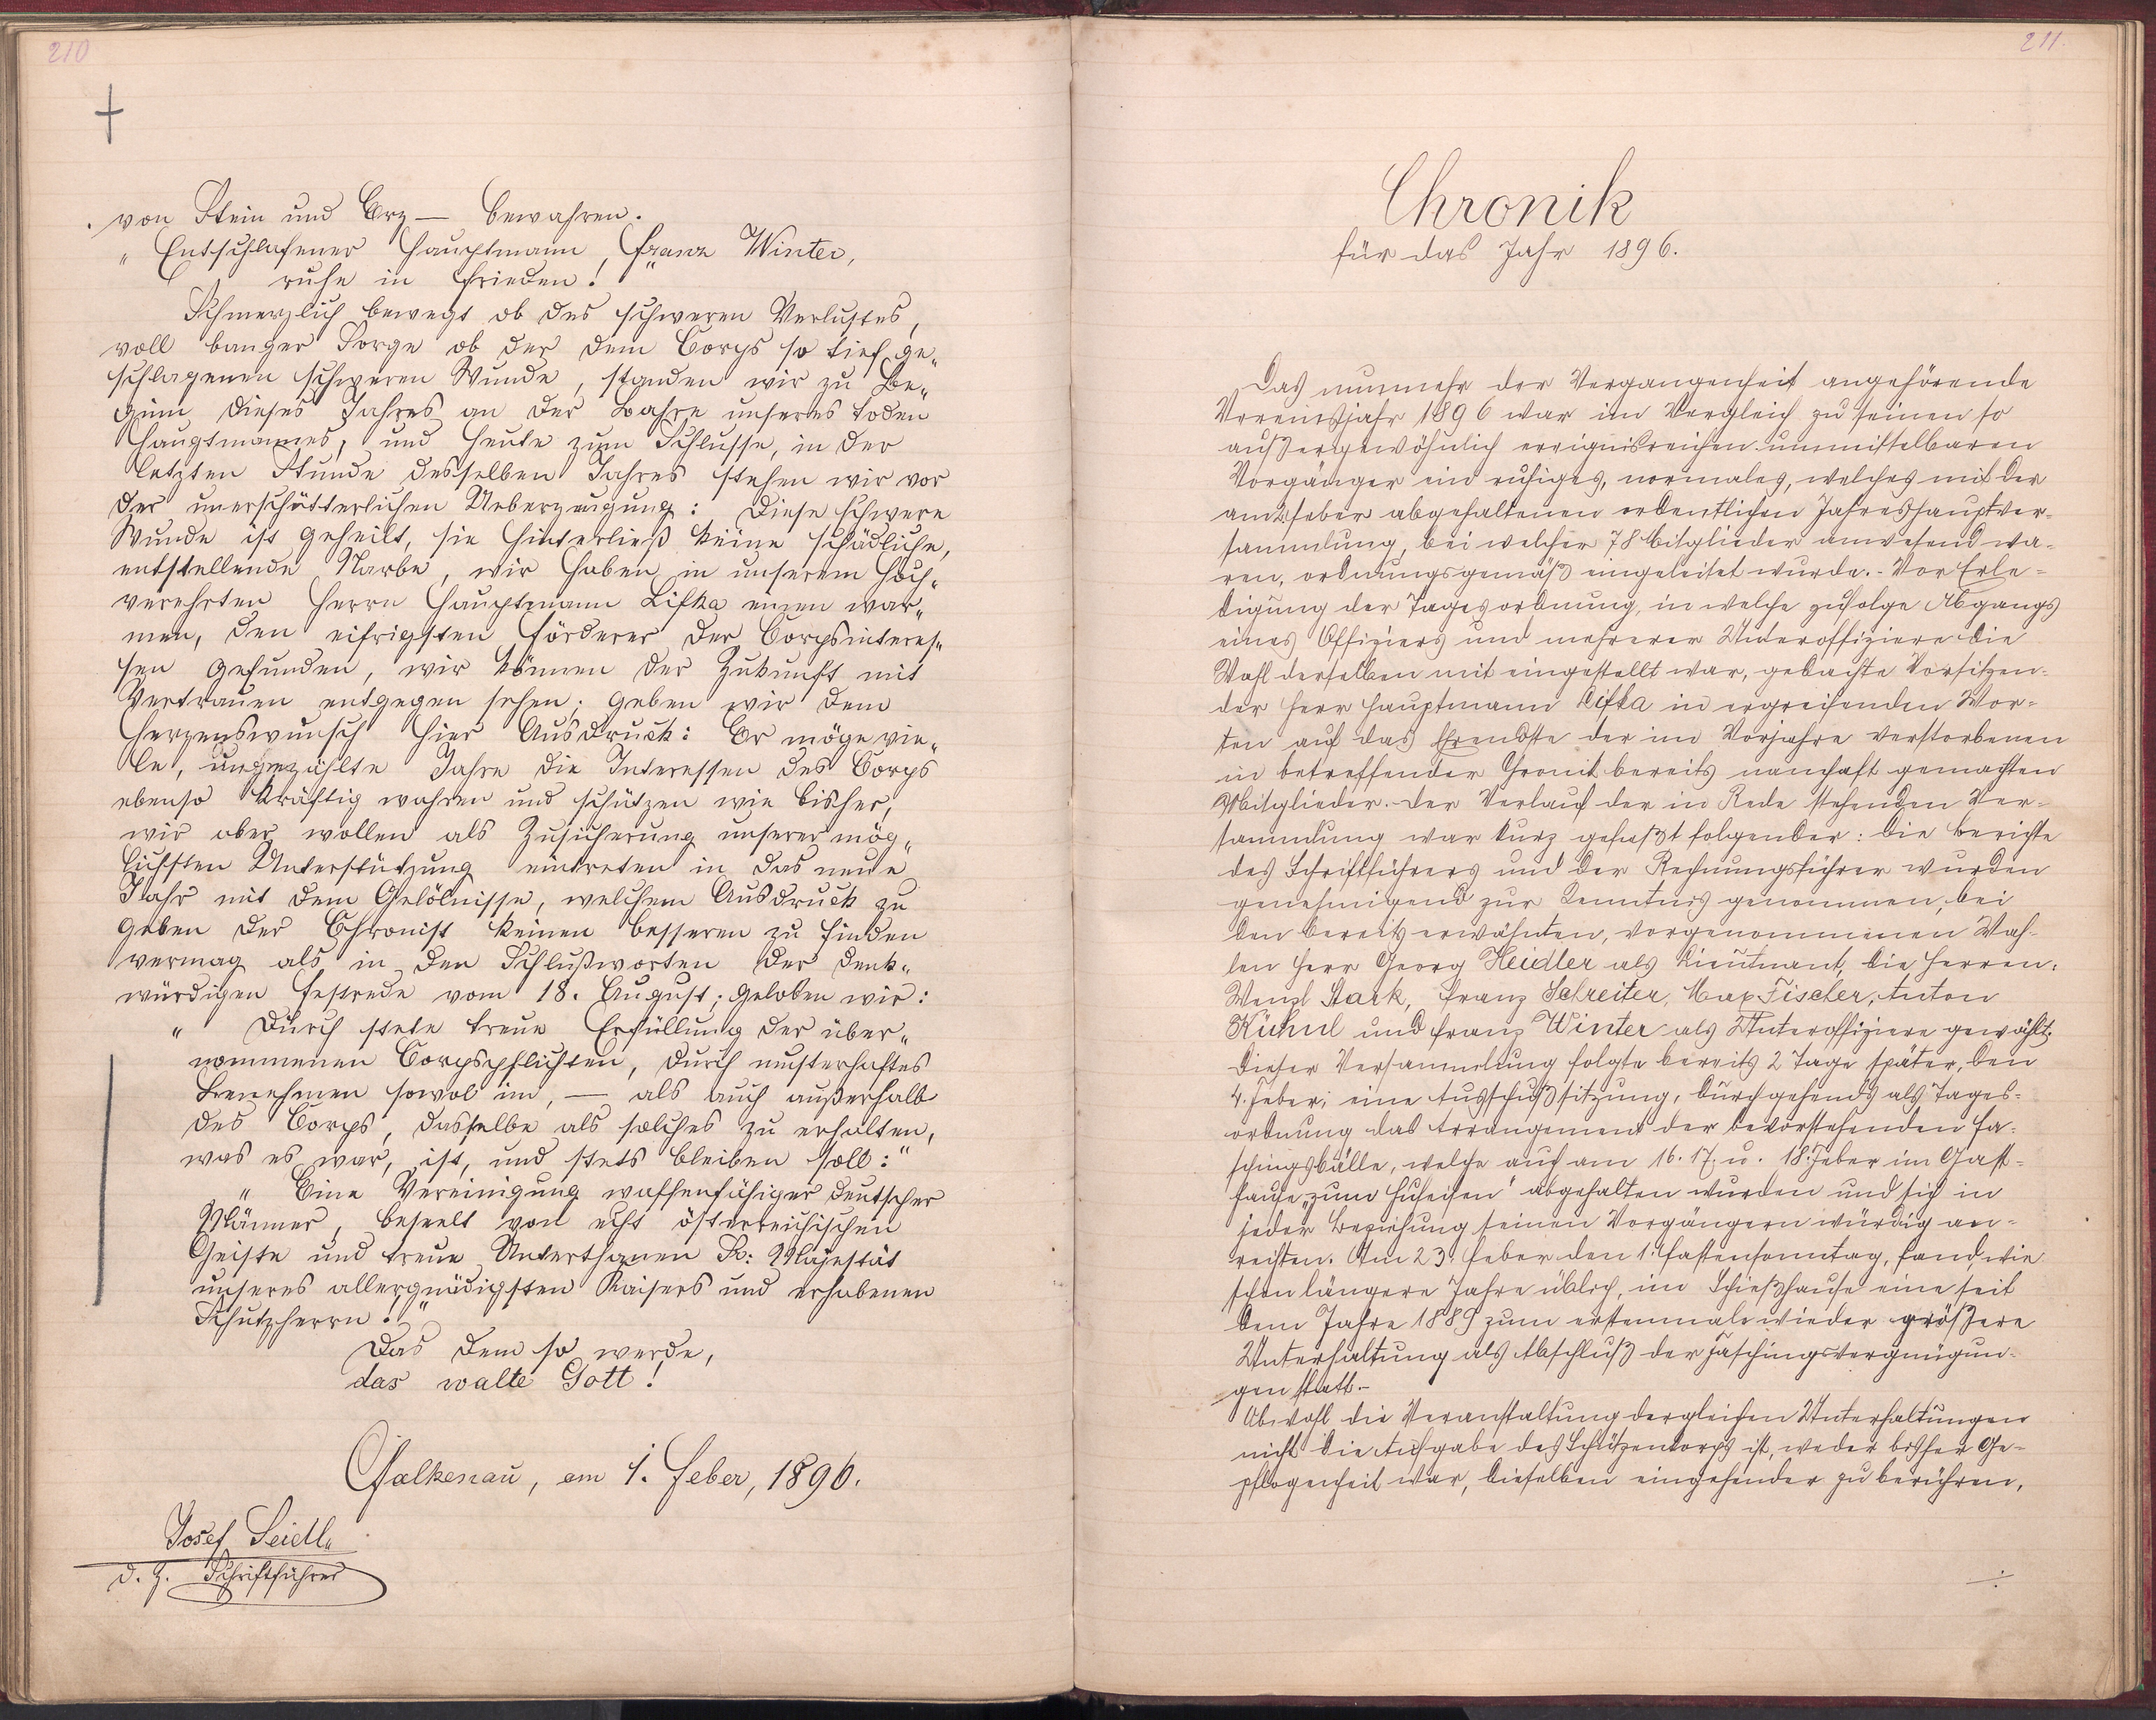 210
von Stein und Erz — bewahren.
„Entschlafener Hauptmann, Franz Winter,
ruhe in Frieden!"
Schmerzlich bewegt ob des schweren Verlustes,
voll banger Sorge ob der dem Corps so tief ge„
schlagenen schweren Wunde, standen wir zu Be„
ginn dieses Jahres an der Bahre unseres toden
Hauptmannes, und heute zum Schlusse, in der
letzten Stunde desselben Jahres stehen wir vor
der unerschütterlichen Ueberzeugung: Diese schwere
Wunde ist geheilt, sie hinterließ keine schädliche,
entstellende Narbe, wir haben in unserem hoch„
verehrten Herrn Hauptmann Lifka einen war„
men, den eifrigsten Förderer der Corpsinteres„
sen gefunden, wir können der Zukunft mit
Vertrauen entgegen sehen; geben wir dem
Herzenswunsch hier Ausdruck: Er möge vie„
le, ungezählte Jahre die Interessen des Corps
ebenso kräftig wahren und schützen wie bisher,
wir aber wollen als Zusicherung unserer mög„
lichsten Unterstützung eintreten in das neue
Jahr mit dem Gelöbnisse, welchem Ausdruck zu
geben der Chronist keinen besseren zu finden
vermag als in den Schlußworten der denk„
würdigen Festrede vom 18. August; geloben wir:
„Durch stete treue Erfüllung der über„
nommenen Corpspflichten, durch musterhaftes
Benehmen sowol im, — als auch außerhalb
des Corps, dasselbe als solches zu erhalten,
was es war, ist, und stets bleiben soll:"
„Eine Vereinigung waffenfähiger deutscher
Männer, beseelt von echt österreichischen
Geiste und treue Unterthanen Sr: Majestät
unseres allergnädigsten Kaisers und erhabenen
Schutzherrn!"
Das dem so werde,
das walte Gott!
Falkenau, am 1. Feber, 1896.
Josef Seidl
d. Z. Schriftführer
211.
Chronik
für das Jahr 1896.
Das nunmehr der Vergangenheit angehörende
Vereinsjahr 1896 war im Vergleich zu seinen so
außergewöhnlich ereignisreichen unmittelbaren
Vorgänger ein ruhiges, normales, welches mit der
am 2. Feber abgehaltenen ordentlichen Jahreshauptver-
sammlung, bei welcher 78 Mitglieder anwesend wa-
ren, ordnungsgemäß eingeleitet wurde. - Vor Erle-
digung der Tagesordnung, in welche zufolge Abgangs
eines Offiziers und mehrerer Unteroffiziere die
Wahl derselben mit eingestellt war, gedachte Vorsitzen-
der Herr Hauptmann Lifka in ergreifenden Wor-
ten auf das Ehrendste der im Vorjahre verstorbenen
in betreffender Chronik bereits namhaft gemachten
Mitglieder. Der Verlauf der in Rede stehenden Ver-
sammlung war kurz gefaßt folgender: Die Berichte
des Schriftführers und der Rechnungsführer wurden
genehmigend zur Kenntnis genommen, bei
den bereits erwähnten, vorgenommenen Wah-
len Herr Georg Heidler als Lieutnant, die Herren:
Wenzl Stark, Franz Schreiter, Max Fischer, Anton
Kühnl und Franz Winter als Unteroffiziere gewählt.
Dieser Versammlung folgte bereits 2 Tage später, den
4. Feber, eine Ausschußsitzung, durchgehends als Tages-
ordnung das Arrangement der bevorstehenden Fa-
schingsbälle, welche auch am 16. 17. u. 18. Feber im Gast-
hause „zum Hufeisen" abgehalten wurden und sich in
jeder Beziehung seinen Vorgängern würdig an-
reihten. Am 23. Feber den 1. Fastensonntag, fand, wie
schon längere Jahre üblich, im Schießhause eine seit
dem Jahre 1889 zum erstenmale wieder größere
Unterhaltung als Abschluß der Faschingsvergnügun-
gen statt.-
Obwohl die Veranstaltung dergleichen Unterhaltungen
nicht die Aufgabe des Schützenkorps ist, weder bisher Ge-
pflogenheit war, dieselben eingehender zu berühren,
./.